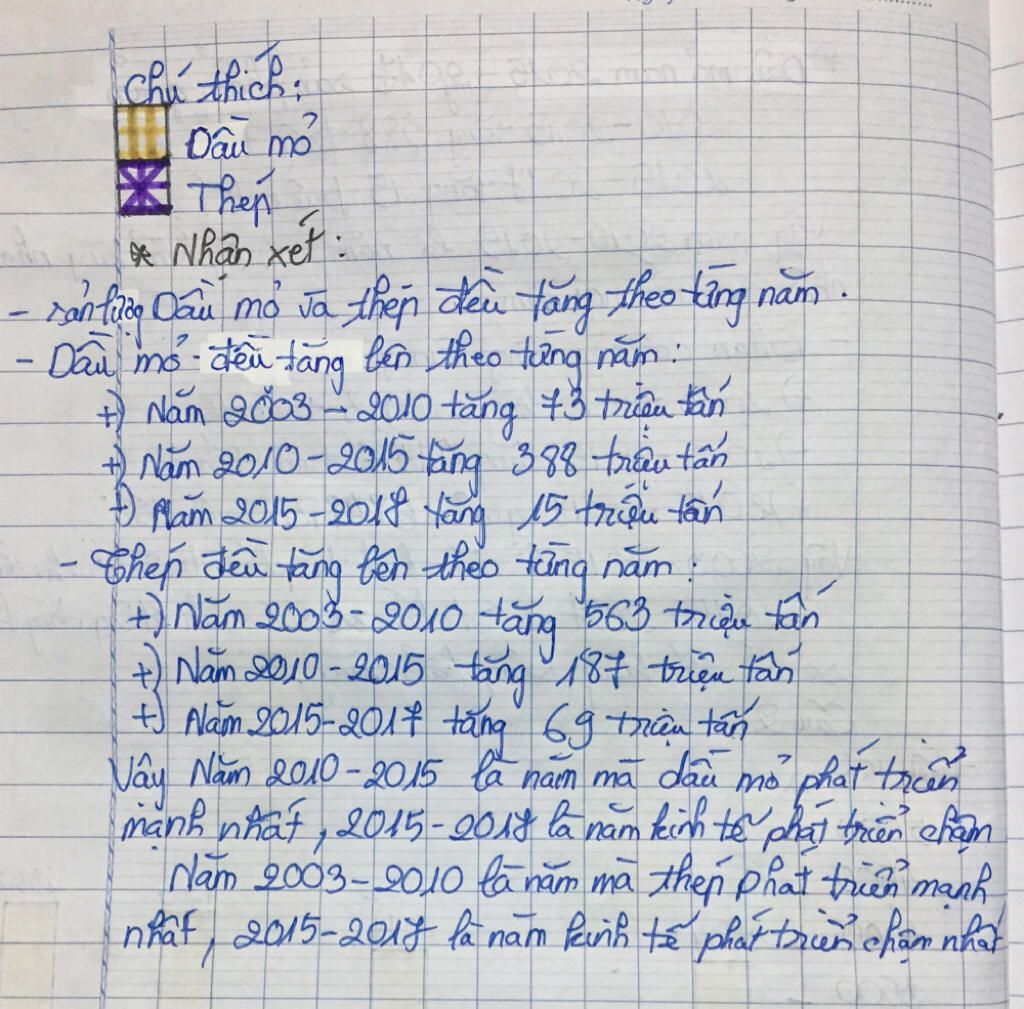 Chú thích:
Dầu mỏ
Thép
* Nhận xét:
- sản lượng Dầu mỏ và thép đều tăng theo từng năm.
- Dầu mỏ đều tăng lên theo từng năm:
+) Năm 2003 - 2010 tăng 73 triệu tấn
+) Năm 2010 - 2015 tăng 388 triệu tấn
+) Năm 2015 - 2017 tăng 15 triệu tấn
- Thép đều tăng lên theo từng năm:
+) Năm 2003 - 2010 tăng 563 triệu tấn
+) Năm 2010 - 2015 tăng 187 triệu tấn
+) Năm 2015 - 2017 tăng 69 triệu tấn
Vậy Năm 2010 - 2015 là năm mà dầu mỏ phát triển
mạnh nhất, 2015 - 2017 là năm kinh tế phát triển chậm
Năm 2003 - 2010 là năm mà thép phát triển mạnh
nhất, 2015 - 2017 là năm kinh tế phát triển chậm nhất